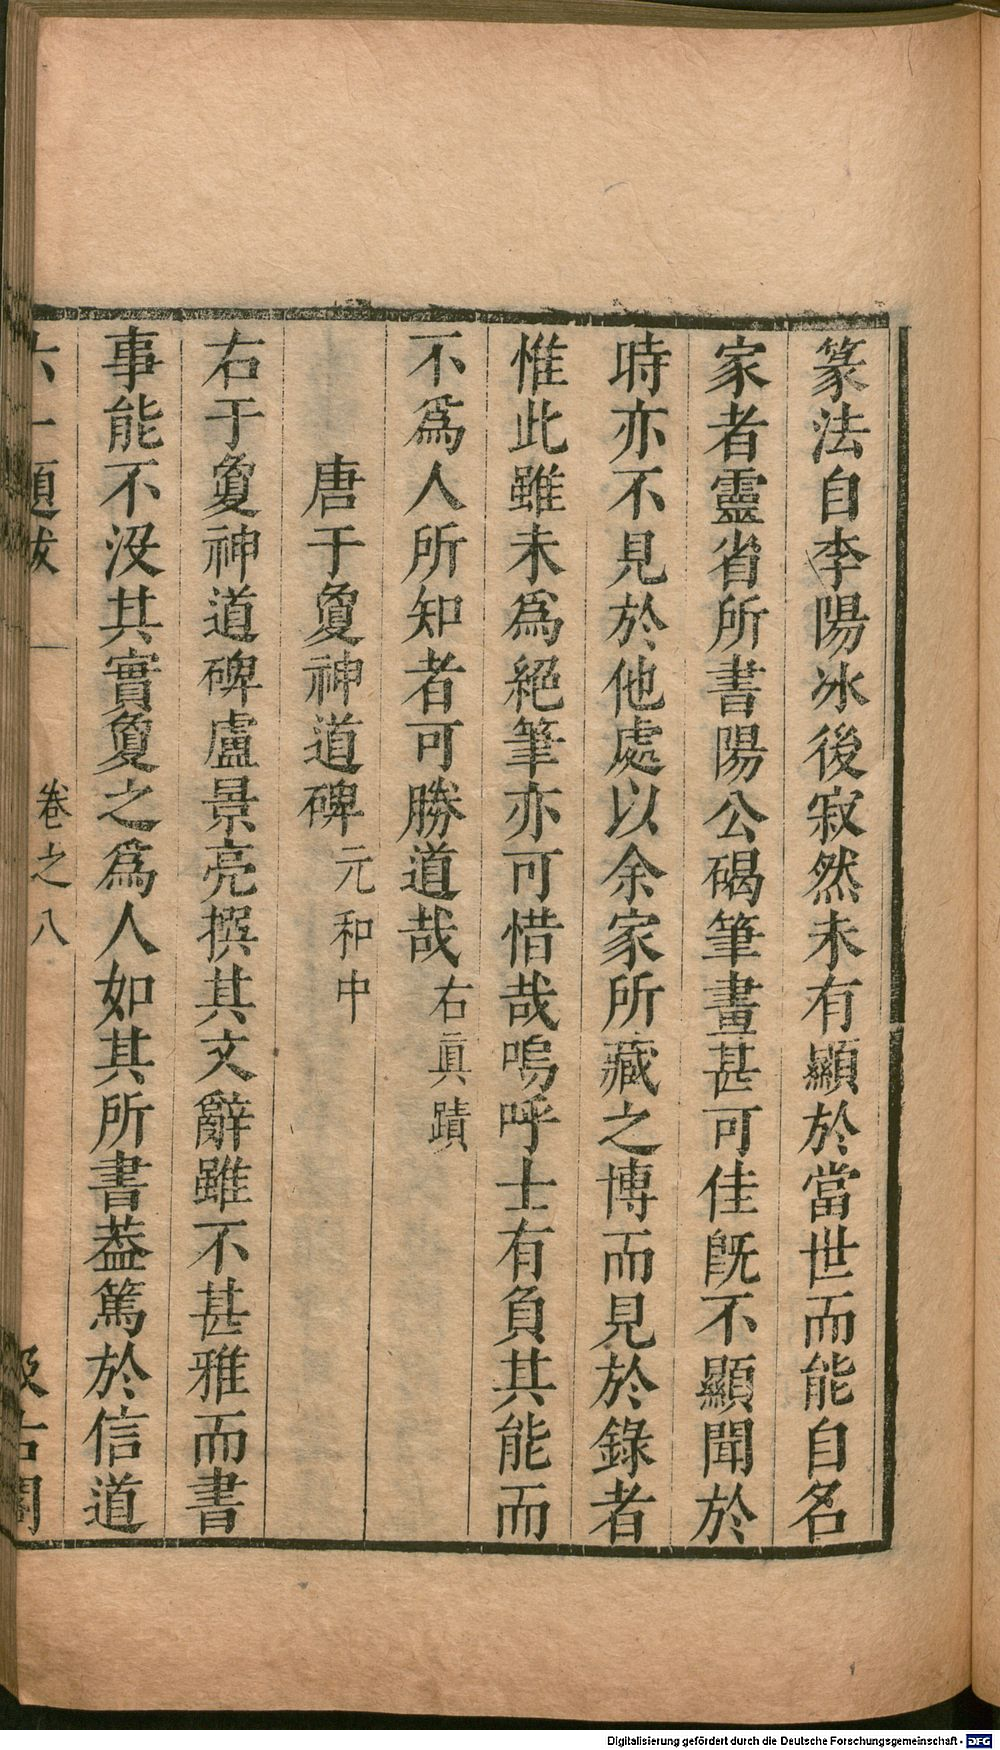 篆法自李陽冰後寂然未有顯於當世而能自名
家者靈省所書陽公碣筆畫甚可佳旣不顯聞於
時亦不見於他處以余家所藏之博而見於錄者
惟此雖未爲絕筆亦可惜哉嗚呼士有負其能而
不爲人所知者可勝道哉右眞蹟
唐于敻神道碑元和中
右于敻神道碑盧景亮撰其文辭雖不甚雅而書
事能不沒其實敻之爲人如其所書葢篤於信道
六一題跋 卷之八 汲古閣
Digitalisierung gefördert durch die Deutsche Forschungsgemeinschaft - DFG